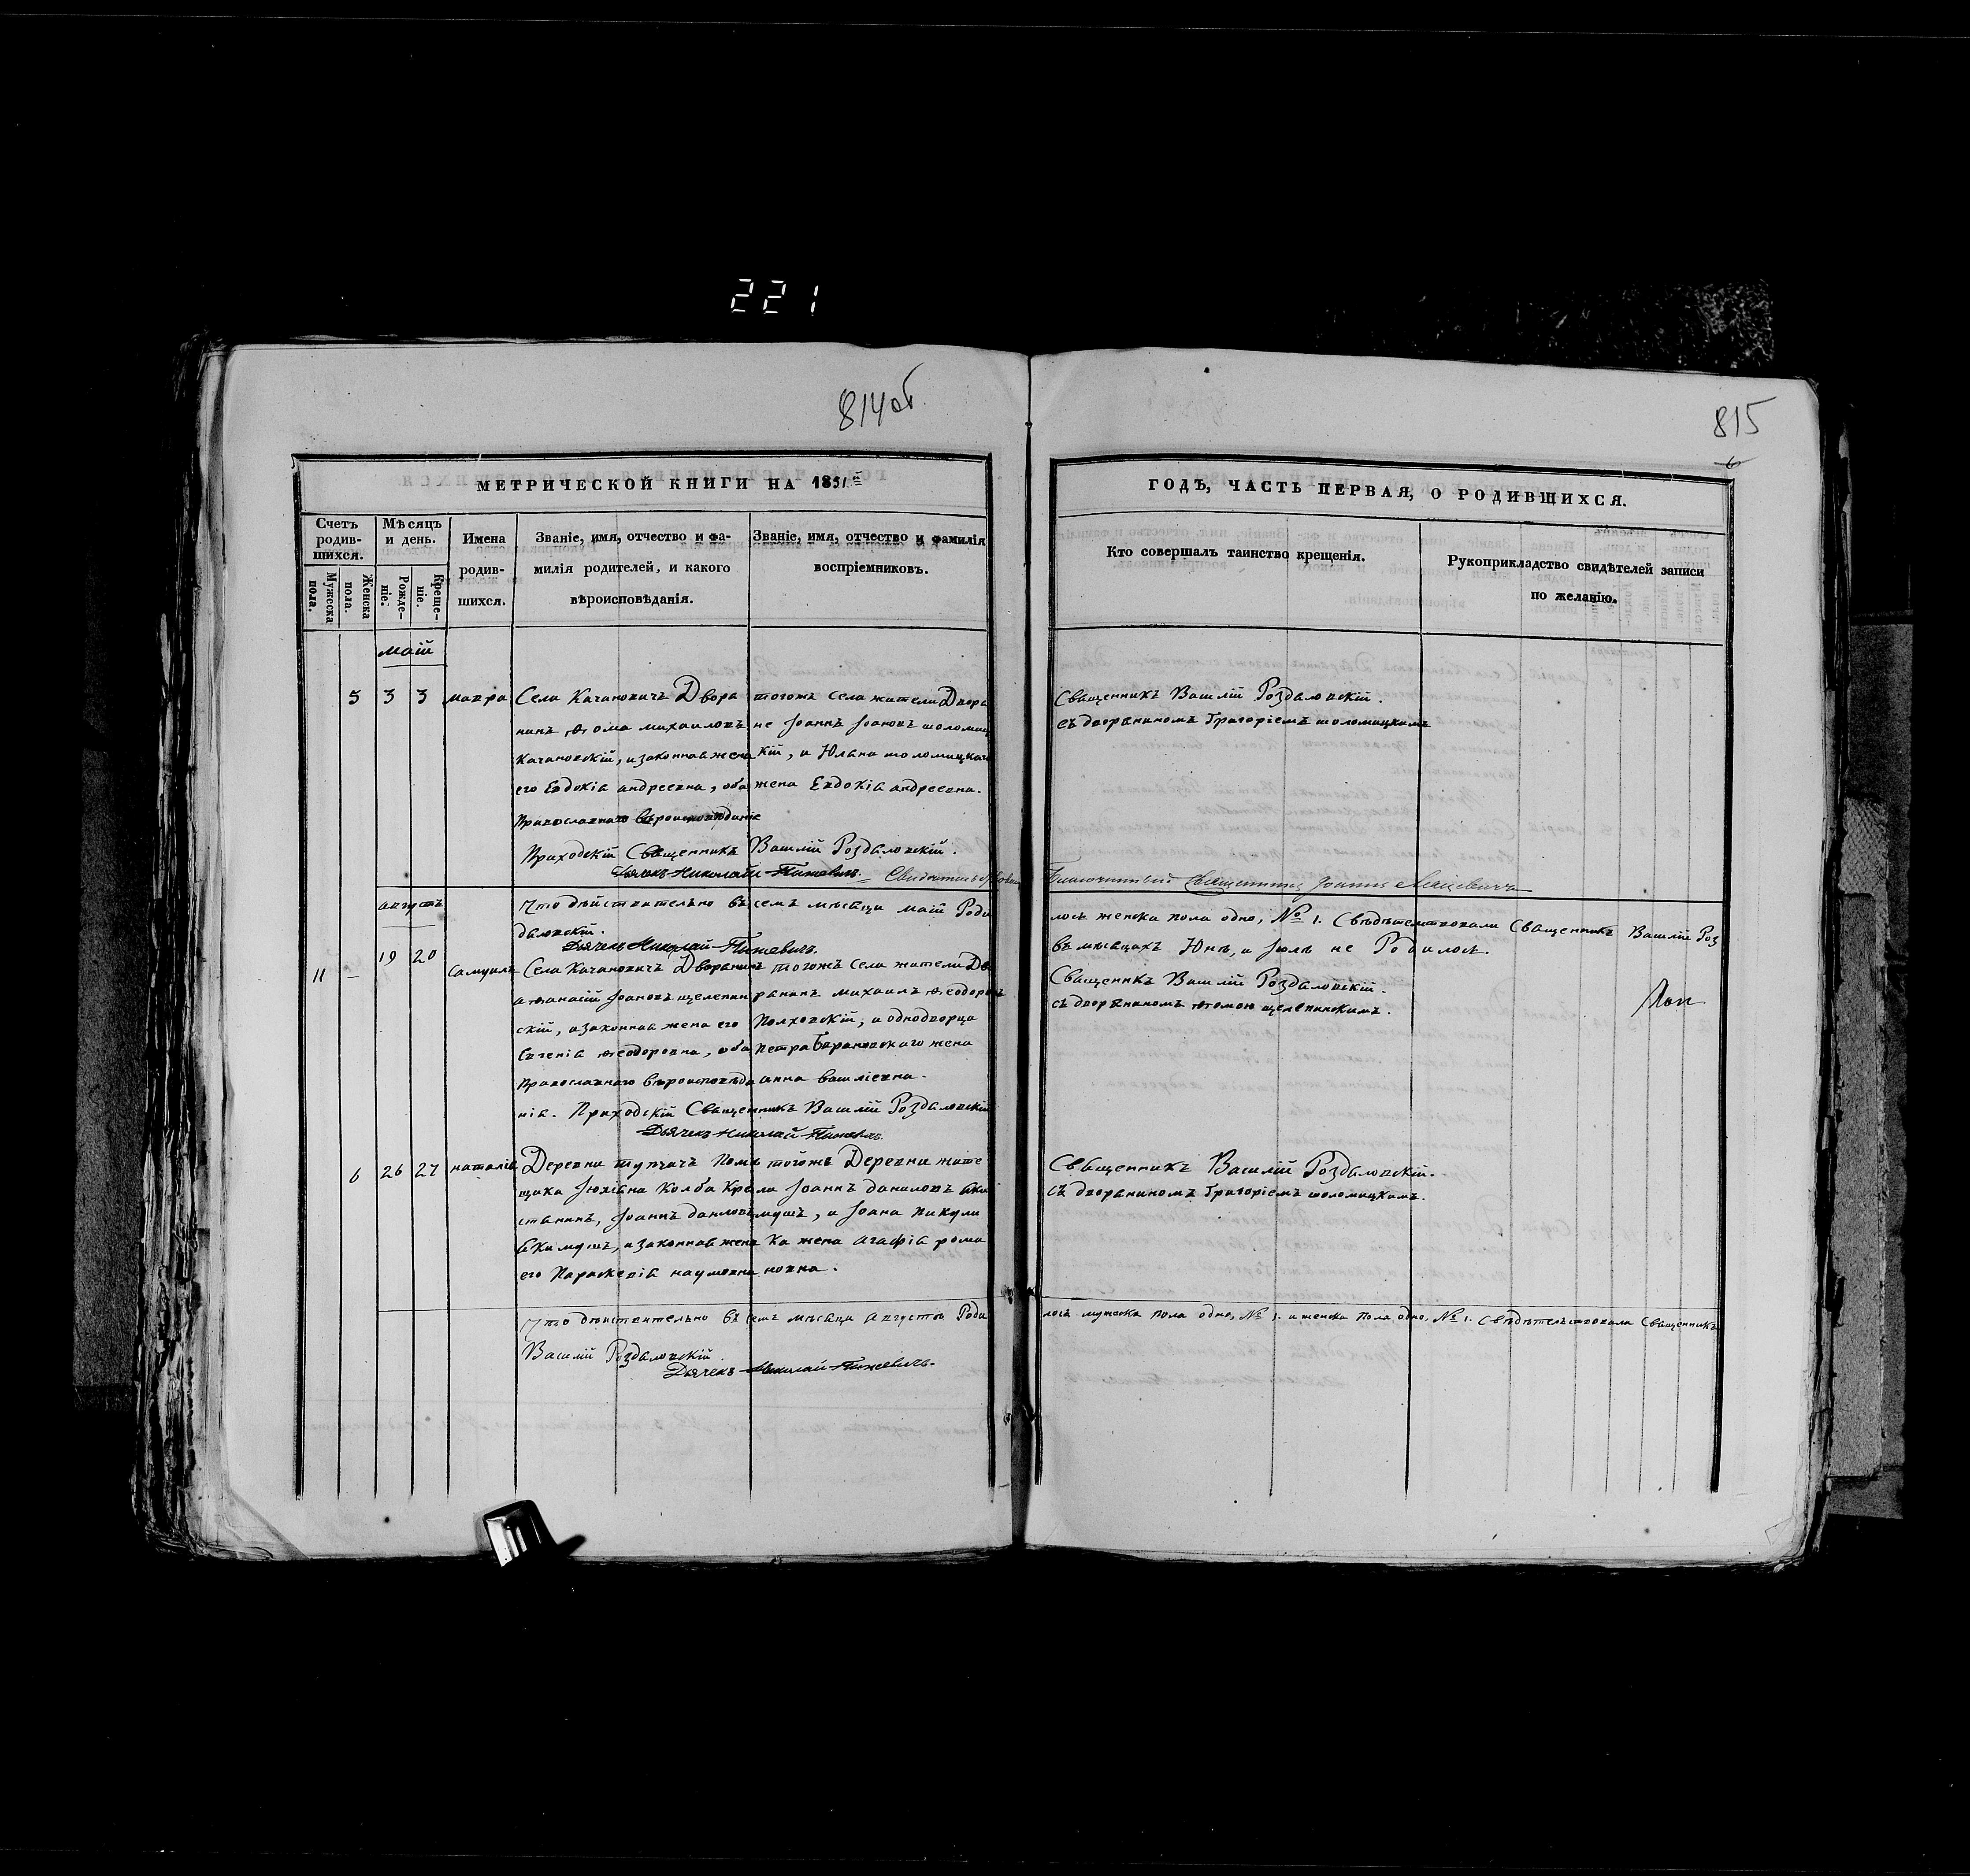 221
814об
815
6
МЕТРИЧЕСКОЙ КНИГИ НА 1851й
ГОДЪ, ЧАСТЬ ПЕРВАЯ, О РОДИВШИХСЯ.
Счетъ родив-шихся.
Мужеска пола.
Женска пола.
Мѣсяцъ и день.
Рожде-ніе.
Креще-ніе.
Имена родив-шихся.
Званіе, имя, отчество и фа-
милія родителей, и какого
вѣроисповѣданія.
Званіе, имя, отчество и фамилія
воспріемниковъ.
Кто совершалъ таинство крещенія.
Рукоприкладство свидѣтелей записи
по желанію.
маій
5 3 3 мавра
Села Качановичъ Дворя
нинъ Ѳома михаиловъ
Качановскій, и законная жена
его Евдокія андреевна, оба
Православнаго вѣроисповѣданіе
тогожъ села жители Дворя
не Іоаннъ Іоановъ шоломиц
кій, и Юльяна шоломицкаго
жена Евдокія андреевна.
Священникъ Василій Роздяловскій.
съ дворяниномъ Григоріемъ шоломицкимъ
Приходскій Священникъ Василій Роздяловскій.
Дьячекъ Николай
Благочинный Священникъ Іоаннъ
августъ
Что дѣйствительно въ семъ мѣсяцѣ маій Роди
лось женска пола одно, № 1. Свѣдѣтельствовали Священникъ Василій Роз
дяловскій.
Дьячекъ Николай
въ мѣсяцахъ Юнѣ, и Іюлѣ не Родилось.
11 — 19 20 Самуилъ
Села Качановичъ Дворянинъ
аѳанасій Іоановъ щелепин
скій, и законная жена его
Евгенія Ѳеодоровна, оба
Православнаго вѣроисповѣда
нія. Приходскій Священникъ Василій Роздяловскій
Дьячекъ Николай
тогожъ села жители Дво
рянинъ михаилъ Ѳеодоровъ
Полховскій, и однодворца
Петра Барановскаго жена
анна василіевна.
Священникъ Василій Роздяловскій.
съ дворяниномъ Ѳомою щелепинскимъ.
6 26 27 наталія
Деревни тупчичъ Помѣ
щика Іюліяна Колба Кре
стьянинъ, Іоаннъ даниловъ
якимушъ, и законная жена
его Параскевія наумовна
тогожъ Деревни жите
ли Іоаннъ даниловъ яки
мушъ, и Іоана Пикули
ка жена агафія рома
новна.
Священникъ Василій Роздяловскій.
съ дворяниномъ Григоріемъ шоломицкимъ.
Что дѣйствительно въ семъ мѣсяцѣ августѣ Роди
лось мужеска пола одно, № 1. и женска пола одно, № 1. Свѣдѣтельствовали Священникъ
Василій Роздяловскій
Дьячекъ Николай